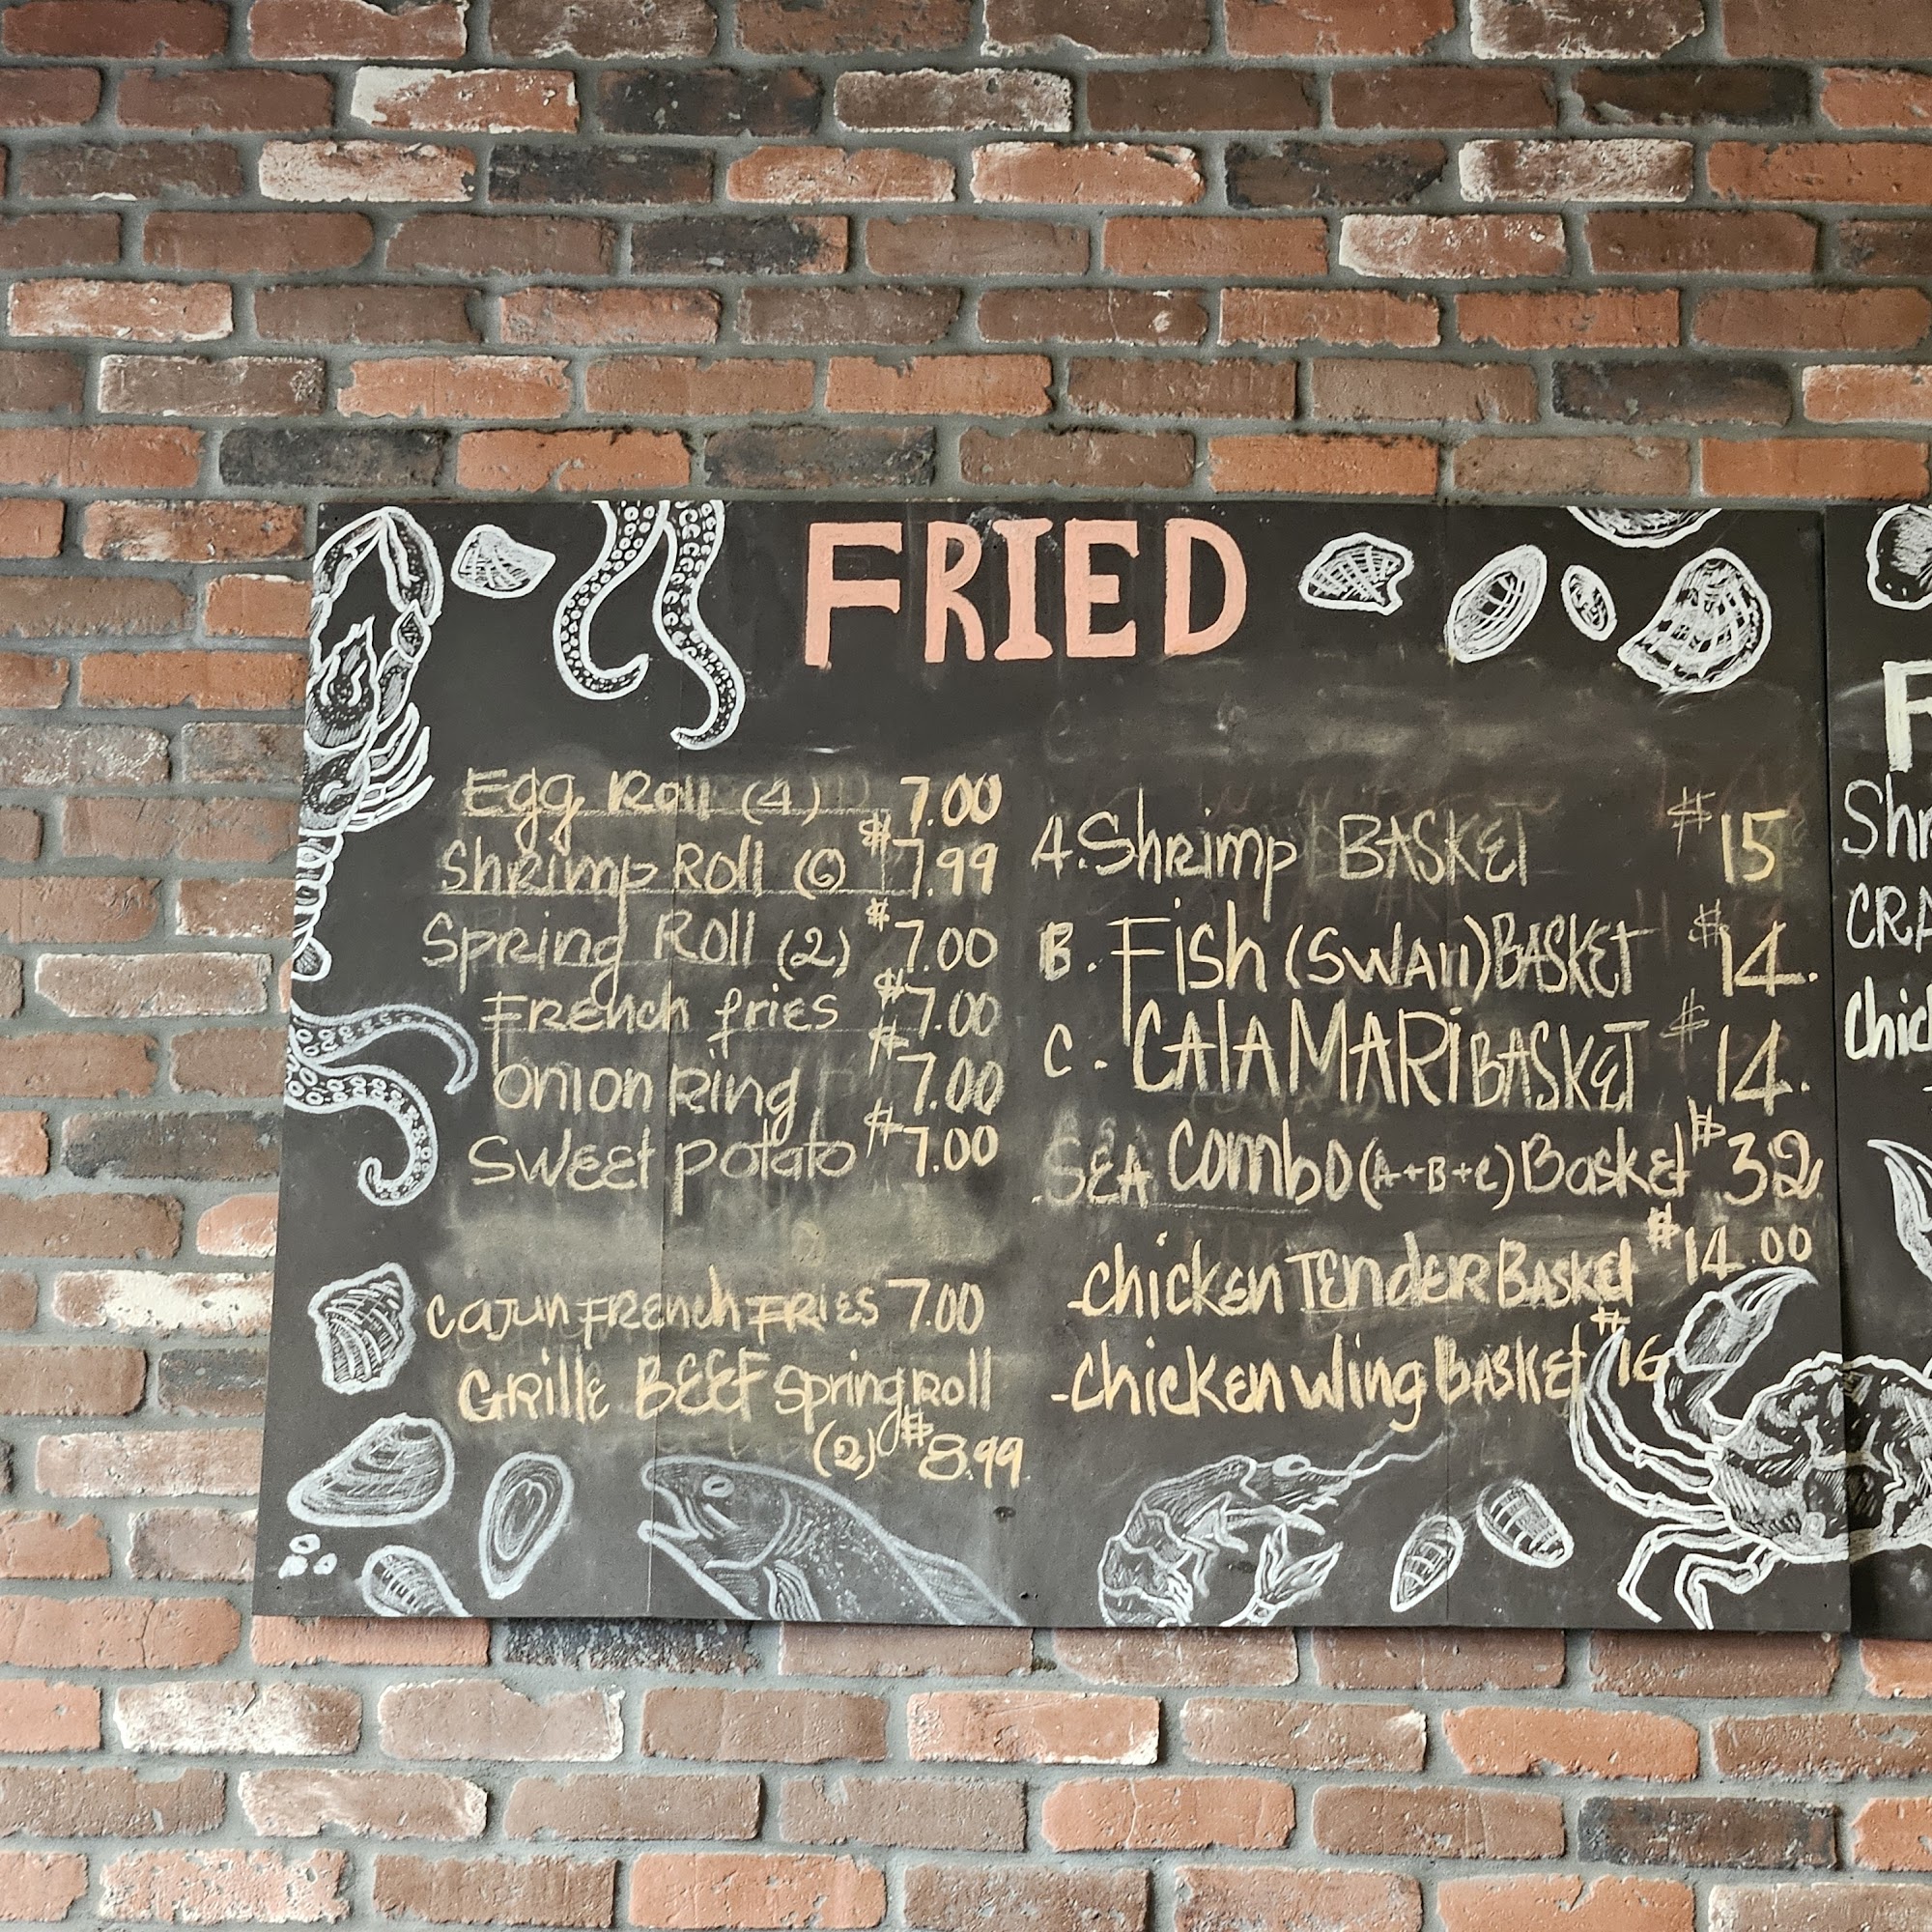 FRIED
Egg Roll (4) 7.00
Shrimp Roll (6) $7.99
Spring Roll (2) $7.00
French fries $7.00
Onion Ring $7.00
Sweet potato $7.00
Cajun French Fries 7.00
Grille BEEF Spring Roll
(2) $8.99
A. Shrimp BASKET $15
B. Fish (SWAII) BASKET $14.
C. CALAMARI BASKET $14.
SEA Combo (A+B+C) Basket $32
-Chicken Tender Basket $14.00
-Chicken Wing Basket $16
F
Shr
CRA
Chic